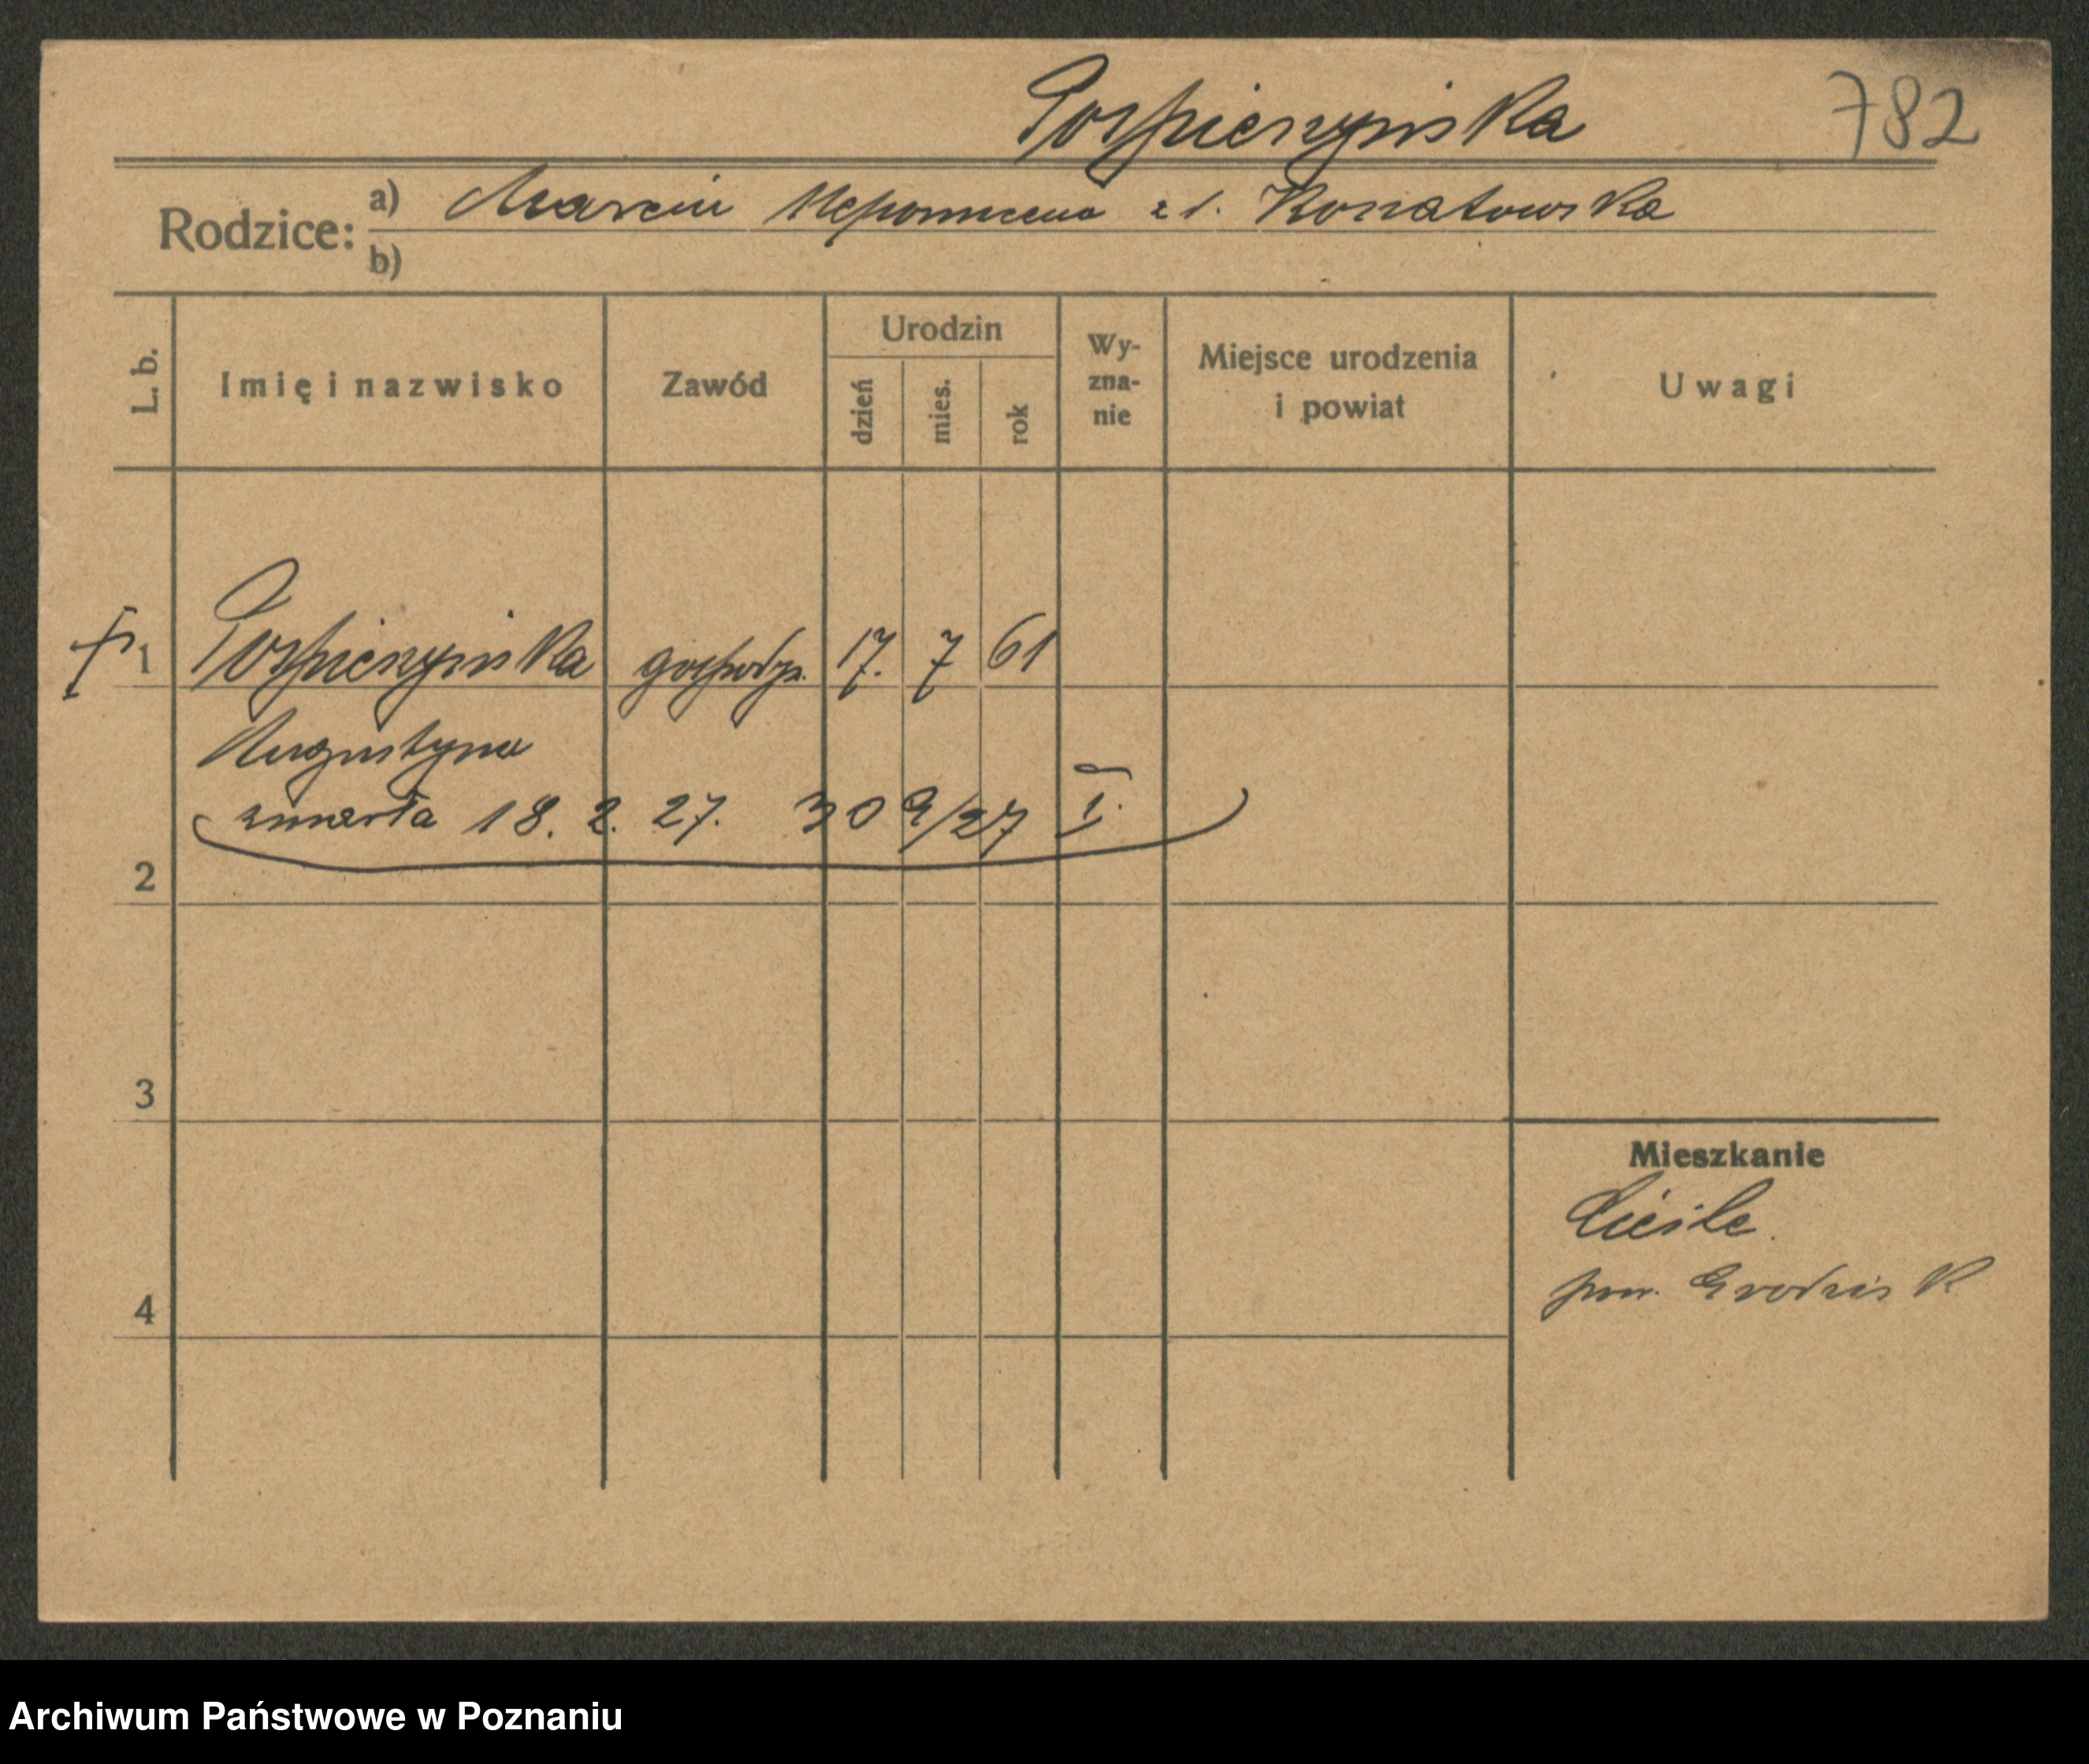 Pospieszyńska 782
Rodzice: a) Marcin Nepomucena z d. Konatowska
b)
L. b. Imię i nazwisko Zawód Urodzin dzień mies. rok Wy-zna-nie Miejsce urodzenia i powiat Uwagi
1 gospodyn. 17. 7 61
Augustyna
zmarła 18. 2. 27. 309/27 I.
2
3
Mieszkanie
Cieśle.
pow. Grodzisk
4
Archiwum Państwowe w Poznaniu